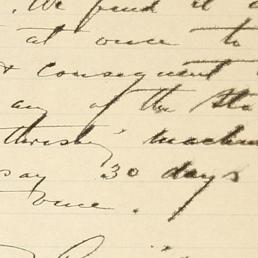 . We find it
at once to
& consequent
any of the Sto
thresh'g machin
say 30 days
once.